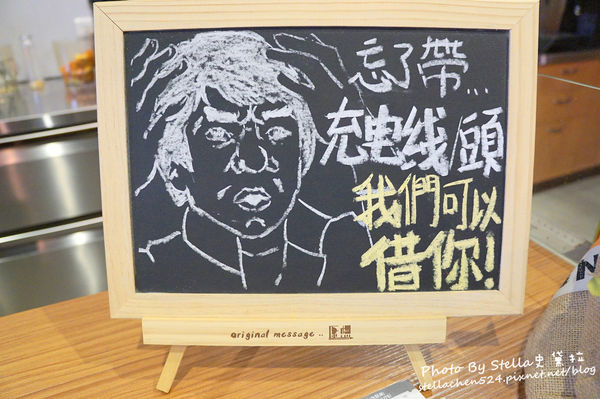 忘了帶...
充電线/頭
我們可以
借你!
original message ..
Photo By Stella史黛拉
stellachen524.pixnet.net/blog